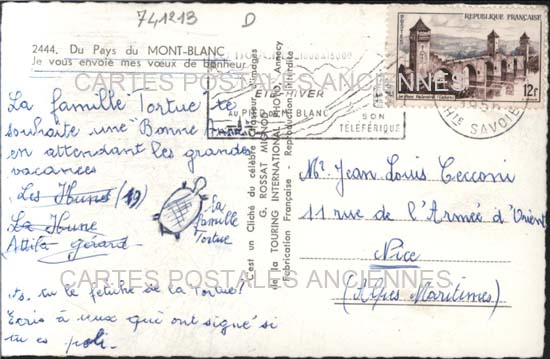 741213 D
2444. Du Pays du MONT-BLANC
Je vous envoie mes vœux de bonheur
La famille "Tortue" te
souhaite une "Bonne
en attendant les grandes
vacances
Les Huns (19)
La Hune
Attila Gérard
la
famille
Tortue
ts. tu le fétiche de la Tortue?
Ecris à ceux qui ont signé si
tu es poli.
C'est un Cliché du célèbre Chasseur d'Images
G. ROSSAT MIGNOD
de la TOURING INTERNATIONAL PHOTO, Annecy
Fabrication Française - Reproduction interdite
ETE HIVER
AU PIED DU MT BLANC
SON
TÉLÉFÉRIQUE
HTE SAVOIE
POSTES
REPUBLIQUE FRANÇAISE
12f
Mr. Jean Louis Cecconi
11 rue de l'Armée d'Orient
Nice
(Alpes Maritimes)
CARTES POSTALES ANCIENNES
CARTES POSTALES ANCIENNES